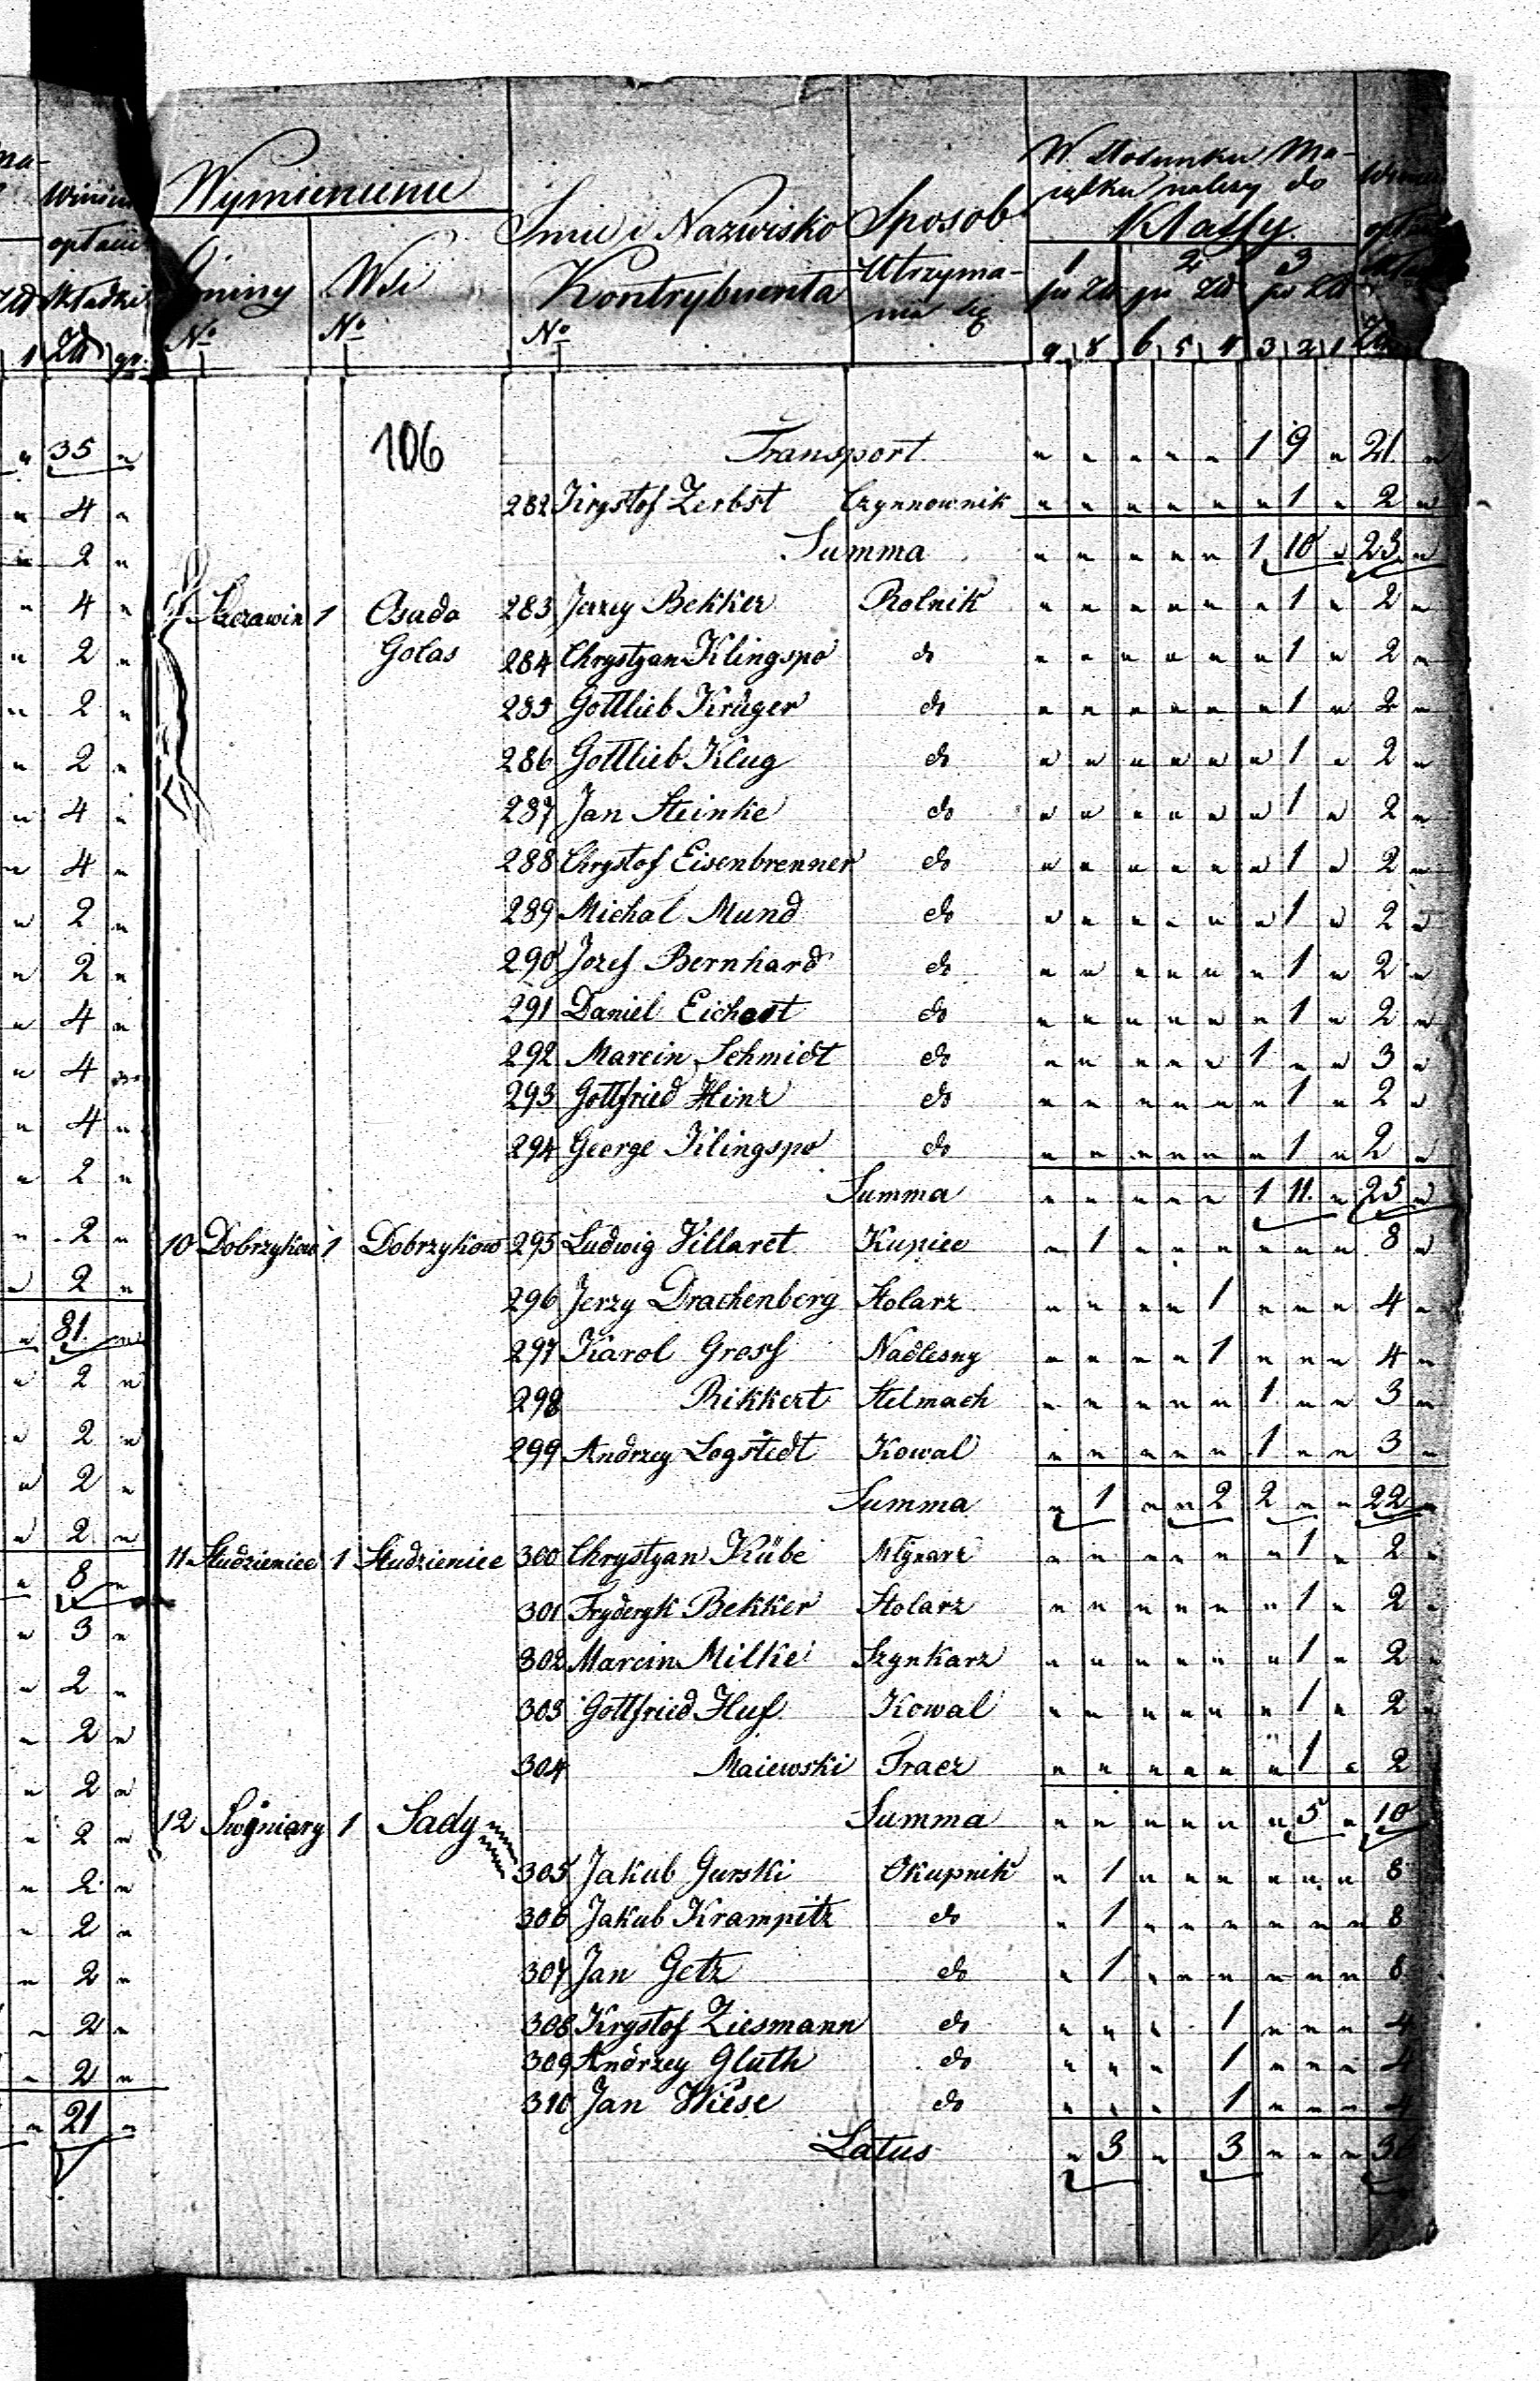 Wymienienie
Gminy Wsi
No No
Imie i Nazwisko
Kontrybuenta
No
Sposob
Utrzyma-
nia się
W Stosunku Ma-
iątku należy do
Klassy
1 2 3
po Zł po Zł po Zł
9 8 6 5 4 3 2 1
106
Transport " " " " " 1 9 " 21 "
282 Krystof Zerbst Czynnownik " " " " " " 1 " 2 "
Summa " " " " " 1 10 " 23 "
Szczawin 1 Osada 283 Jerzy Bekker Rolnik " " " " " " 1 " 2 "
Golas 284 Chrystyan Klingspo do " " " " " " 1 " 2 "
285 Gottlieb Krüger do " " " " " " 1 " 2 "
286 Gottlieb Klug do " " " " " " 1 " 2 "
287 Jan Steinke do " " " " " " 1 " 2 "
288 Chrystof Eisenbrenner do " " " " " " 1 " 2 "
289 Michal Mund do " " " " " " 1 " 2 "
290 Jozef Bernhard do " " " " " " 1 " 2 "
291 Daniel Eichost do " " " " " " 1 " 2 "
292 Marcin Schmidt do " " " " " 1 " " 3 "
293 Gottfried Hinz do " " " " " " 1 " 2 "
294 George Klingspo do " " " " " " 1 " 2 "
Summa " " " " " 1 11 " 25 "
10 Dobrzykow 1 Dobrzykow 295 Ludwig Villaret Kupiec " 1 " " " " " " 8 "
296 Jerzy Drachenberg Stolarz " " " " 1 " " " 4 "
297 Karol Grosf Nadlesny " " " " 1 " " " 4 "
298 Rikkert Stelmach " " " " " 1 " " 3 "
299 Andrzey Logstedt Kowal " " " " " 1 " " 3 "
Summa " 1 " " 2 2 " " 22 "
11 Studzieniec 1 Studzieniec 300 Chrystyan Kübe Młynarz " " " " " " 1 " 2 "
301 Fryderyk Bekker Stolarz " " " " " " 1 " 2 "
302 Marcin Milke Szynkarz " " " " " " 1 " 2 "
303 Gottfried Huf Kowal " " " " " " 1 " 2 "
304 Maiewski Tracz " " " " " " 1 " 2
Summa " " " " " " 5 " 10
12 Swiniary 1 Sady
305 Jakub Gurski Okupnik " 1 " " " " " " 8
306 Jakub Krampitz do " 1 " " " " " " 8
307 Jan Getz do " 1 " " " " " " 8
308 Krystof Ziesmann do " " " " 1 " " " 4
309 Andrzey Gluth do " " " 1 " " " 4
310 Jan Wiese do " " " 1 " " " 4
Latus " 3 " 3 " " "